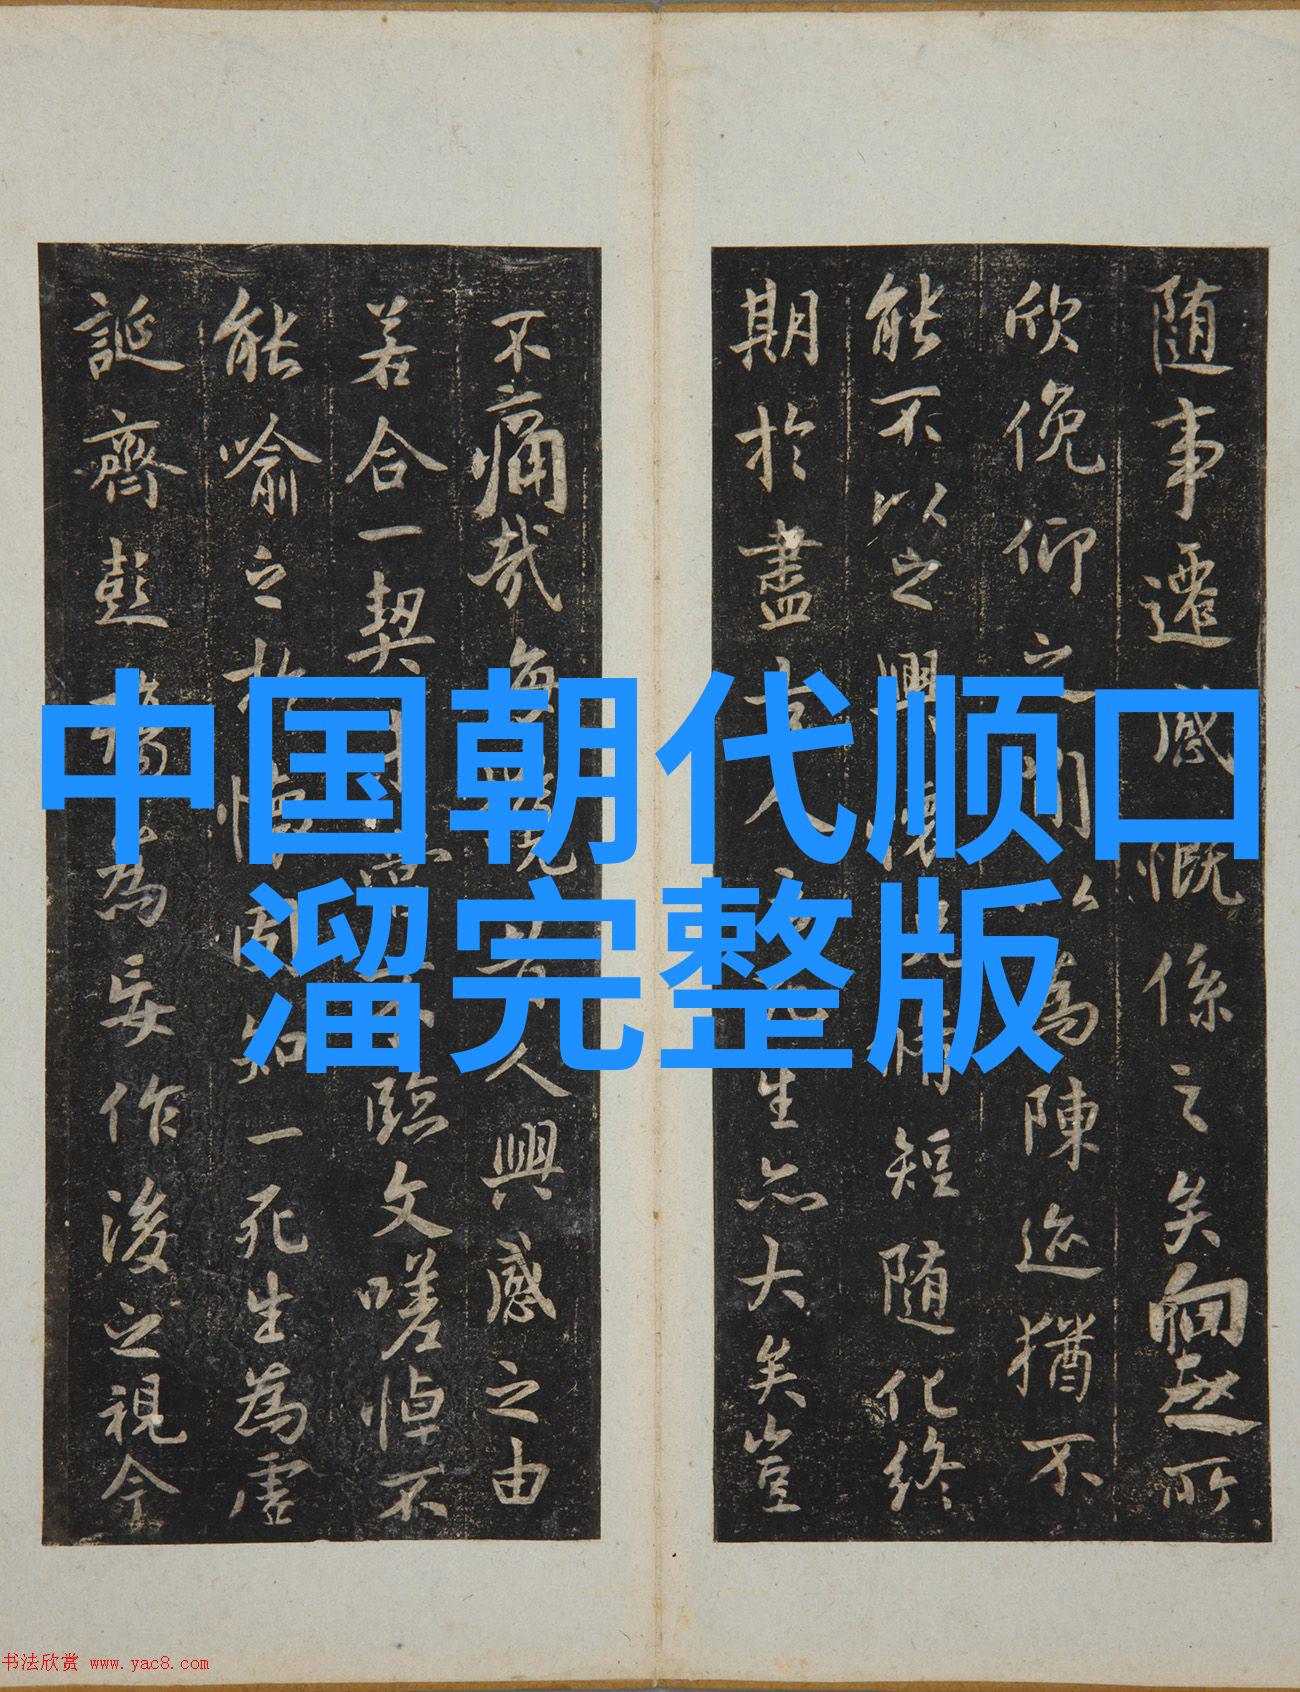 中国朝代顺口
溜完整版
隨事遷感慨係之矣向之所
欣俛仰之間以為陳迹猶不
能不以之興懷況脩短隨化終
期於盡古人生亦大矣豈
不痛哉每攬昔人興感之由
若合一契嘗不臨文嗟悼不
能喻之於懷固知一死生為虛
誕齊彭殤為妄作後之視今
书法欣赏 www.yac8.com